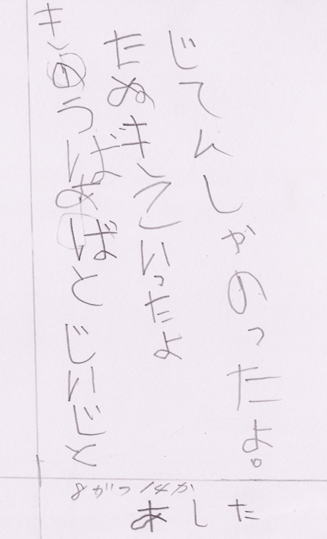 きのうばあばとじいじと
たぬきていったよ
じてんしゃのったよ。
8がつ14か
あした